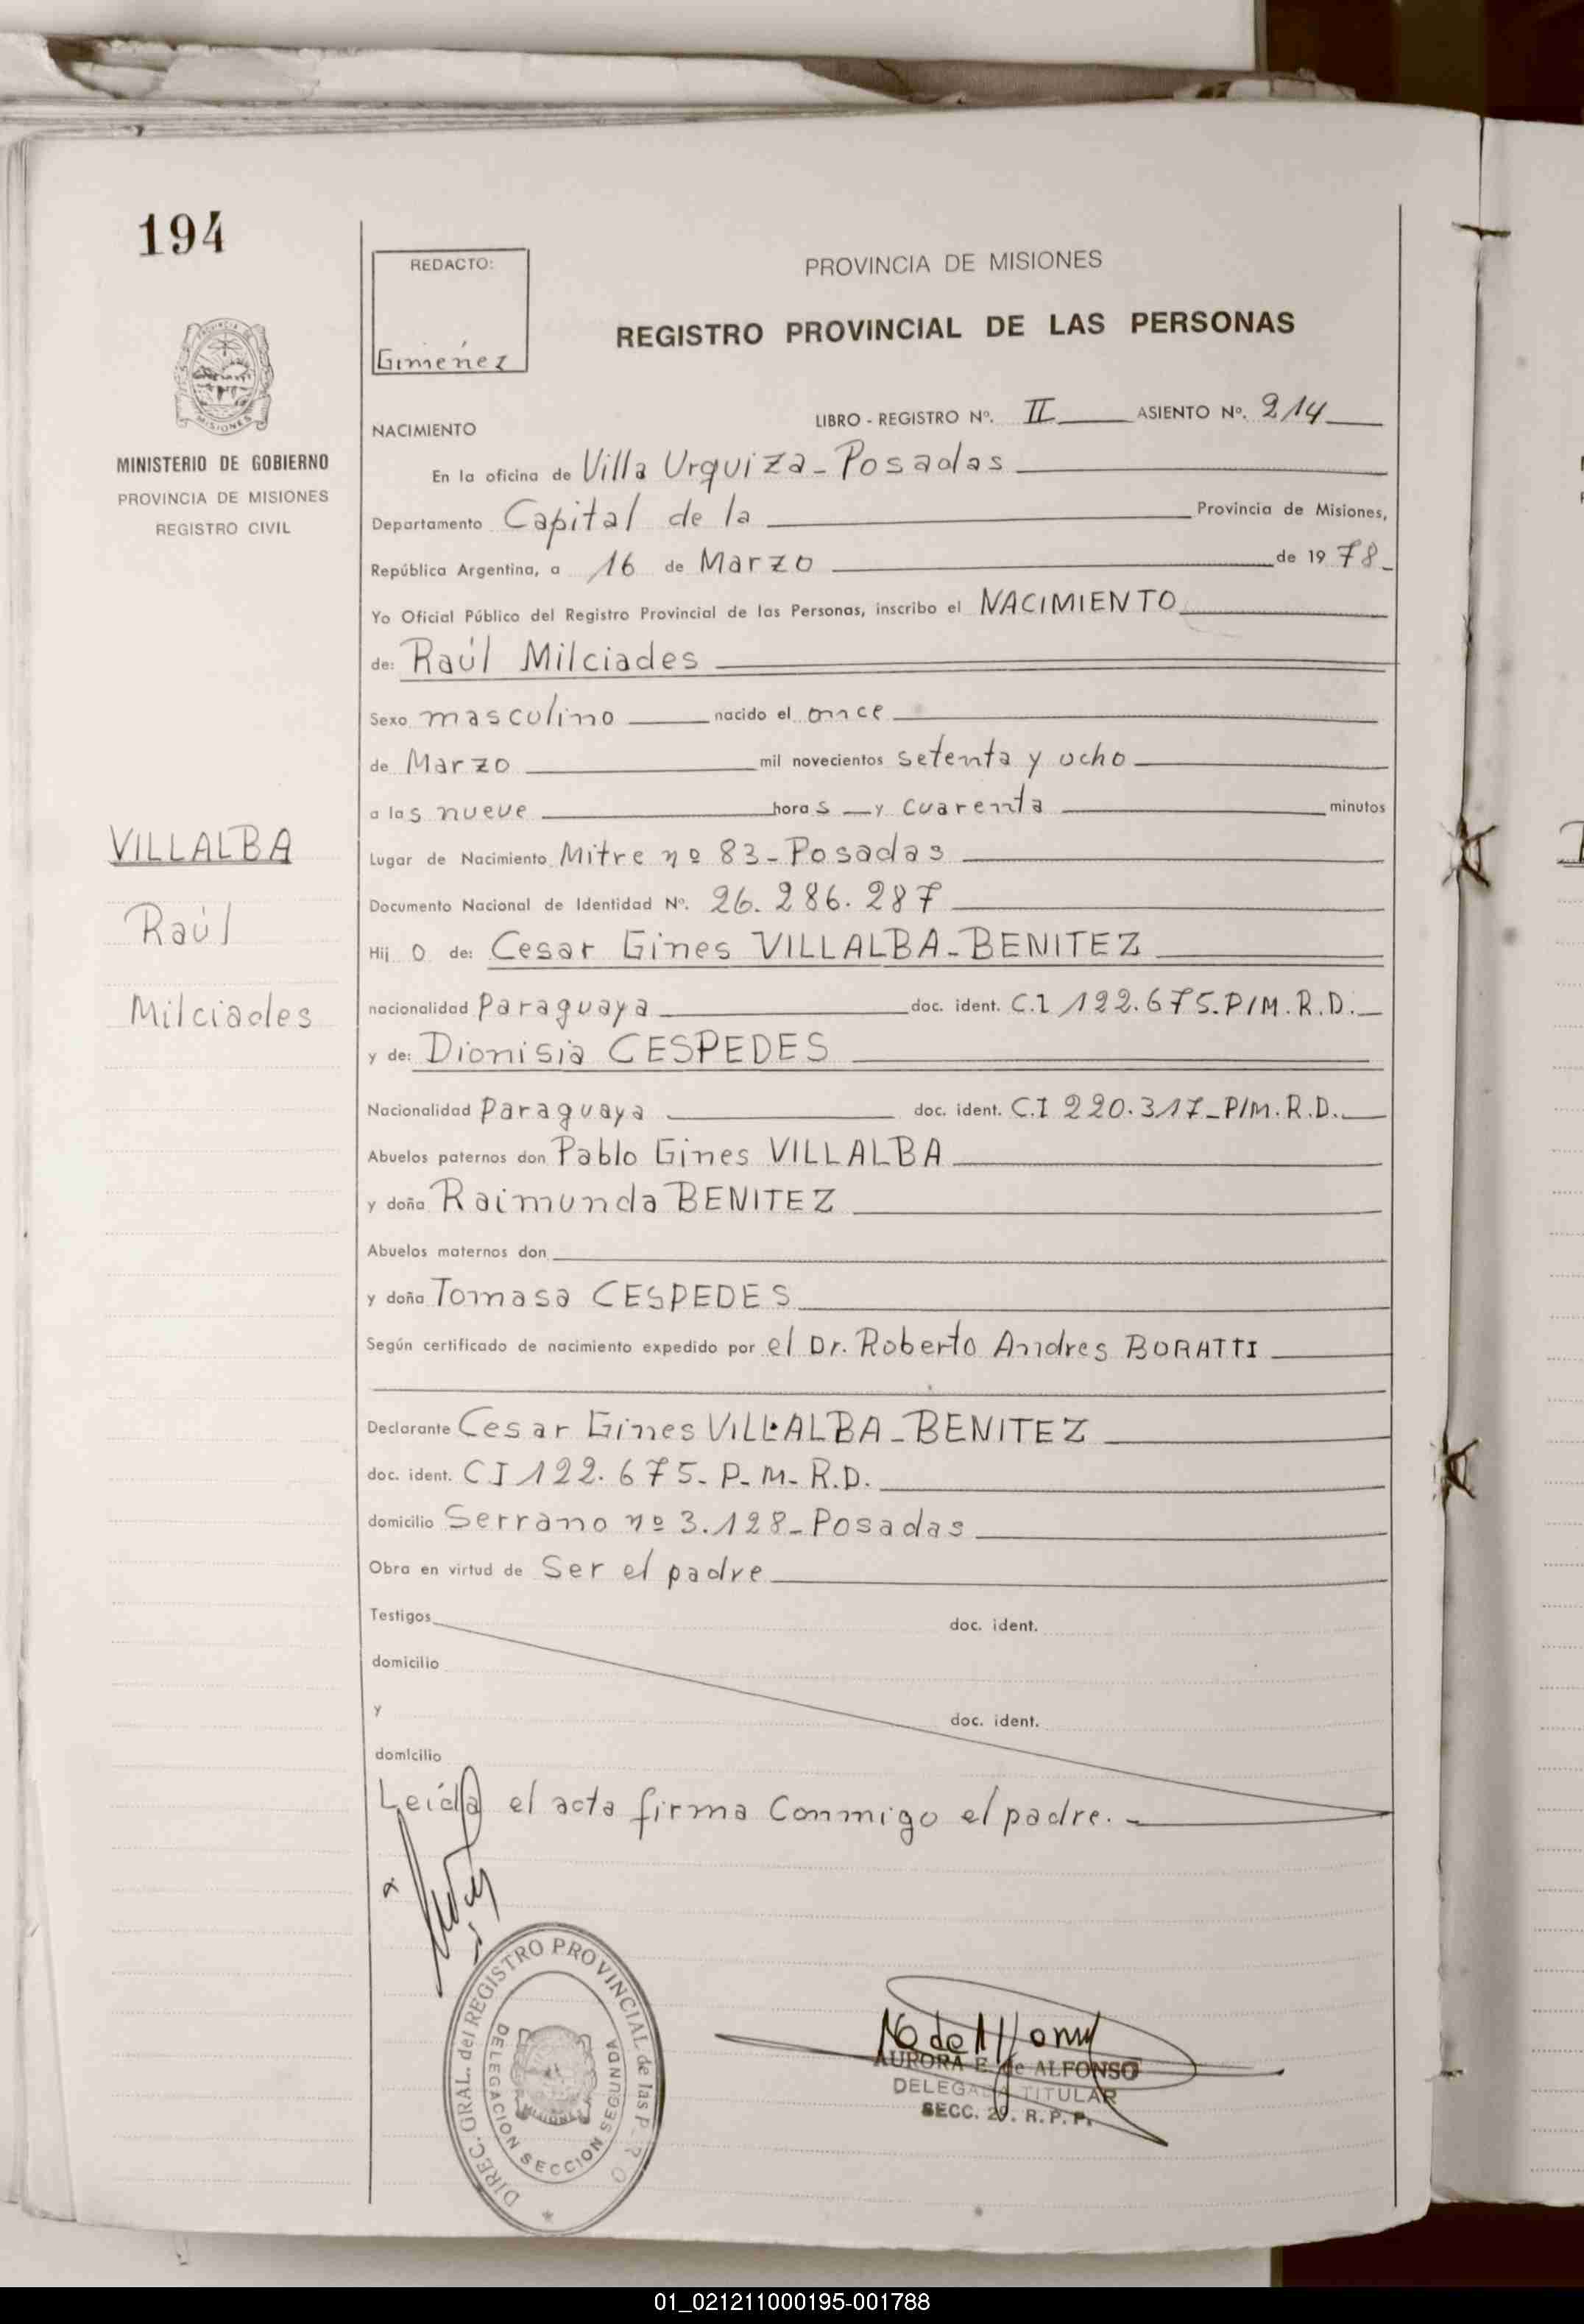 194
REDACTO:
Gimenez
PROVINCIA DE MISIONES
REGISTRO PROVINCIAL DE LAS PERSONAS
MINISTERIO DE GOBIERNO
PROVINCIA DE MISIONES
REGISTRO CIVIL
LIBRO - REGISTRO Nº. II ASIENTO Nº. 214
NACIMIENTO
En la oficina de Villa Urquiza - Posadas
Departamento Capital de la Provincia de Misiones,
República Argentina, a 16 de Marzo de 1978
Yo Oficial Público del Registro Provincial de las Personas, inscribo el NACIMIENTO
de: Raúl Milciades
Sexo masculino nacido el once
de Marzo mil novecientos setenta y ocho
a las nueve horas y cuarenta minutos
VILLALBA
Raúl
Milciades
Lugar de Nacimiento Mitre nº 83 - Posadas
Documento Nacional de Identidad Nº. 26.286.287
Hij o de: Cesar Gines VILLALBA - BENITEZ
nacionalidad Paraguaya doc. ident. C.I 122.675. P/M.R.D.
y de: Dionisia CESPEDES
Nacionalidad Paraguaya doc. ident. C.I 220.317 - P/M.R.D.
Abuelos paternos don Pablo Gines VILLALBA
y doña Raimunda BENITEZ
Abuelos maternos don
y doña Tomasa CESPEDES
Según certificado de nacimiento expedido por el Dr. Roberto Andres BORATTI
Declarante Cesar Gines VILLALBA - BENITEZ
doc. ident. CI 122.675 - P - M - R.D.
domicilio Serrano nº 3.128 - Posadas
Obra en virtud de Ser el padre
Testigos doc. ident.
domicilio
y doc. ident.
domicilio
Leida el acta firma Conmigo el padre. -
DIREC. GRAL. del REGISTRO PROVINCIAL de las P
DELEGACION SECCION SEGUNDA
MISIONES
AURORA E. de ALFONSO
DELEGADA TITULAR
SECC. 2º. R. P. P.
01_021211000195-001788